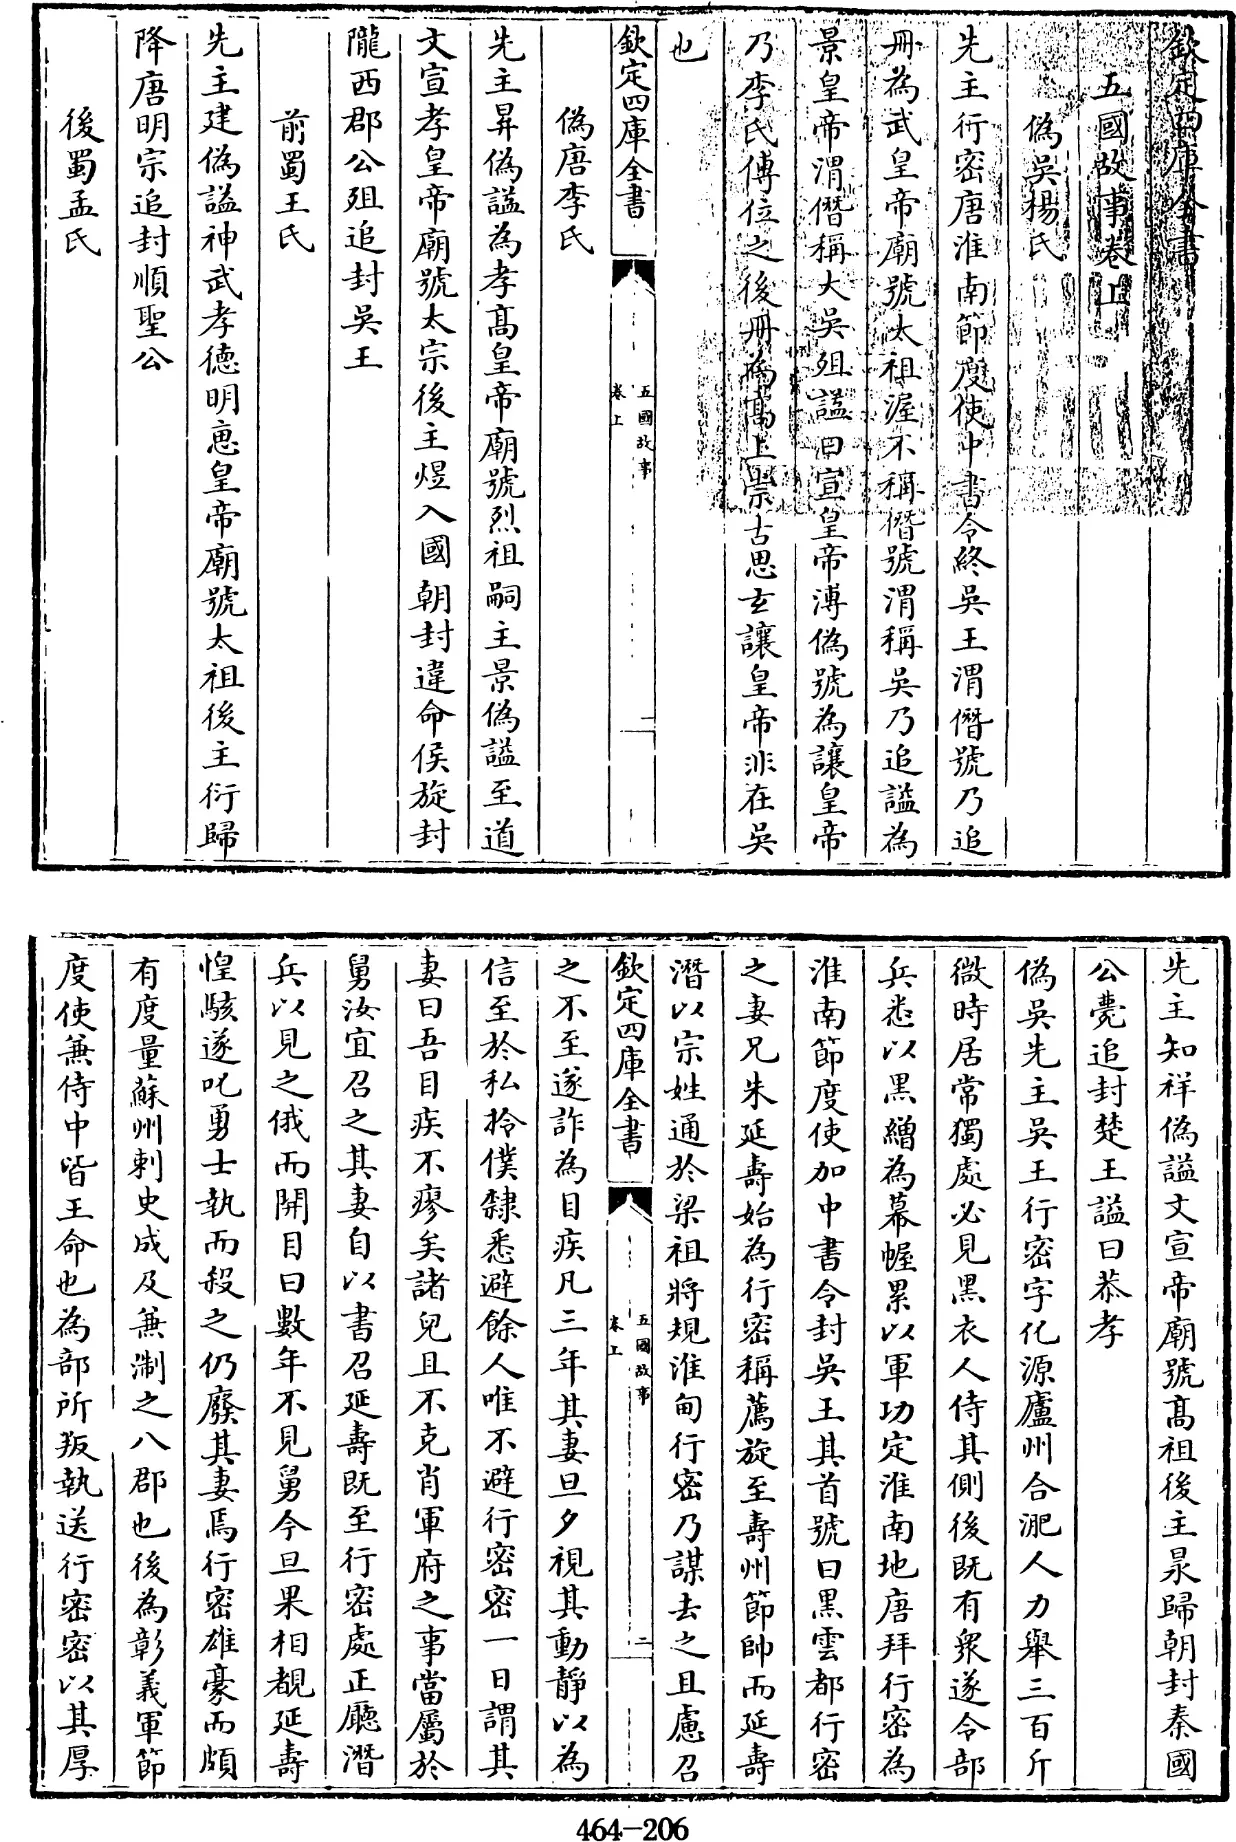 欽定四庫全書
五國故事卷上
偽吳楊氏
先主行密唐淮南節度使中書令終吳王渭僭號乃追
冊為武皇帝廟號太祖渥不稱僭號渭稱吳乃追謚為
景皇帝渭僭稱大吳殂謚曰宣皇帝溥偽號為讓皇帝
乃李氏傳位之後冊為高上崇古思玄讓皇帝非在吳
也
欽定四庫全書
五國故事
卷上
一
偽唐李氏
先主昇偽謚為孝高皇帝廟號烈祖嗣主景偽謚至道
文宣孝皇帝廟號太宗後主煜入國朝封違命侯旋封
隴西郡公殂追封吳王
前蜀王氏
先主建偽謚神武孝德明惠皇帝廟號太祖後主衍歸
降唐明宗追封順聖公
後蜀孟氏
先主知祥偽謚文宣帝廟號高祖後主昶歸朝封秦國
公薨追封楚王謚曰恭孝
偽吳先主吳王行密字化源廬州合淝人力舉三百斤
微時居常獨處必見黑衣人侍其側後既有衆遂令部
兵悉以黑繒為幕幄累以軍功定淮南地唐拜行密為
淮南節度使加中書令封吳王其首號曰黑雲都行密
之妻兄朱延壽始為行密稱薦旋至壽州節帥而延壽
潛以宗姓通於梁祖將規淮甸行密乃謀去之且慮召
欽定四庫全書
五國故事
卷上
二
之不至遂詐為目疾凡三年其妻旦夕視其動靜以為
信至於私㑲僕隸悉避餘人唯不避行密密一日謂其
妻曰吾目疾不瘳矣諸兒且不克肖軍府之事當屬於
舅汝宜召之其妻自以書召延壽既至行密處正廳潛
兵以見之俄而開目曰數年不見舅今旦果相覩延壽
惶駭遂叱勇士執而殺之仍廢其妻焉行密雄豪而頗
有度量蘇州刺史成及兼制之八郡也後為彰義軍節
度使兼侍中皆王命也為部所叛執送行密密以其厚
464-206